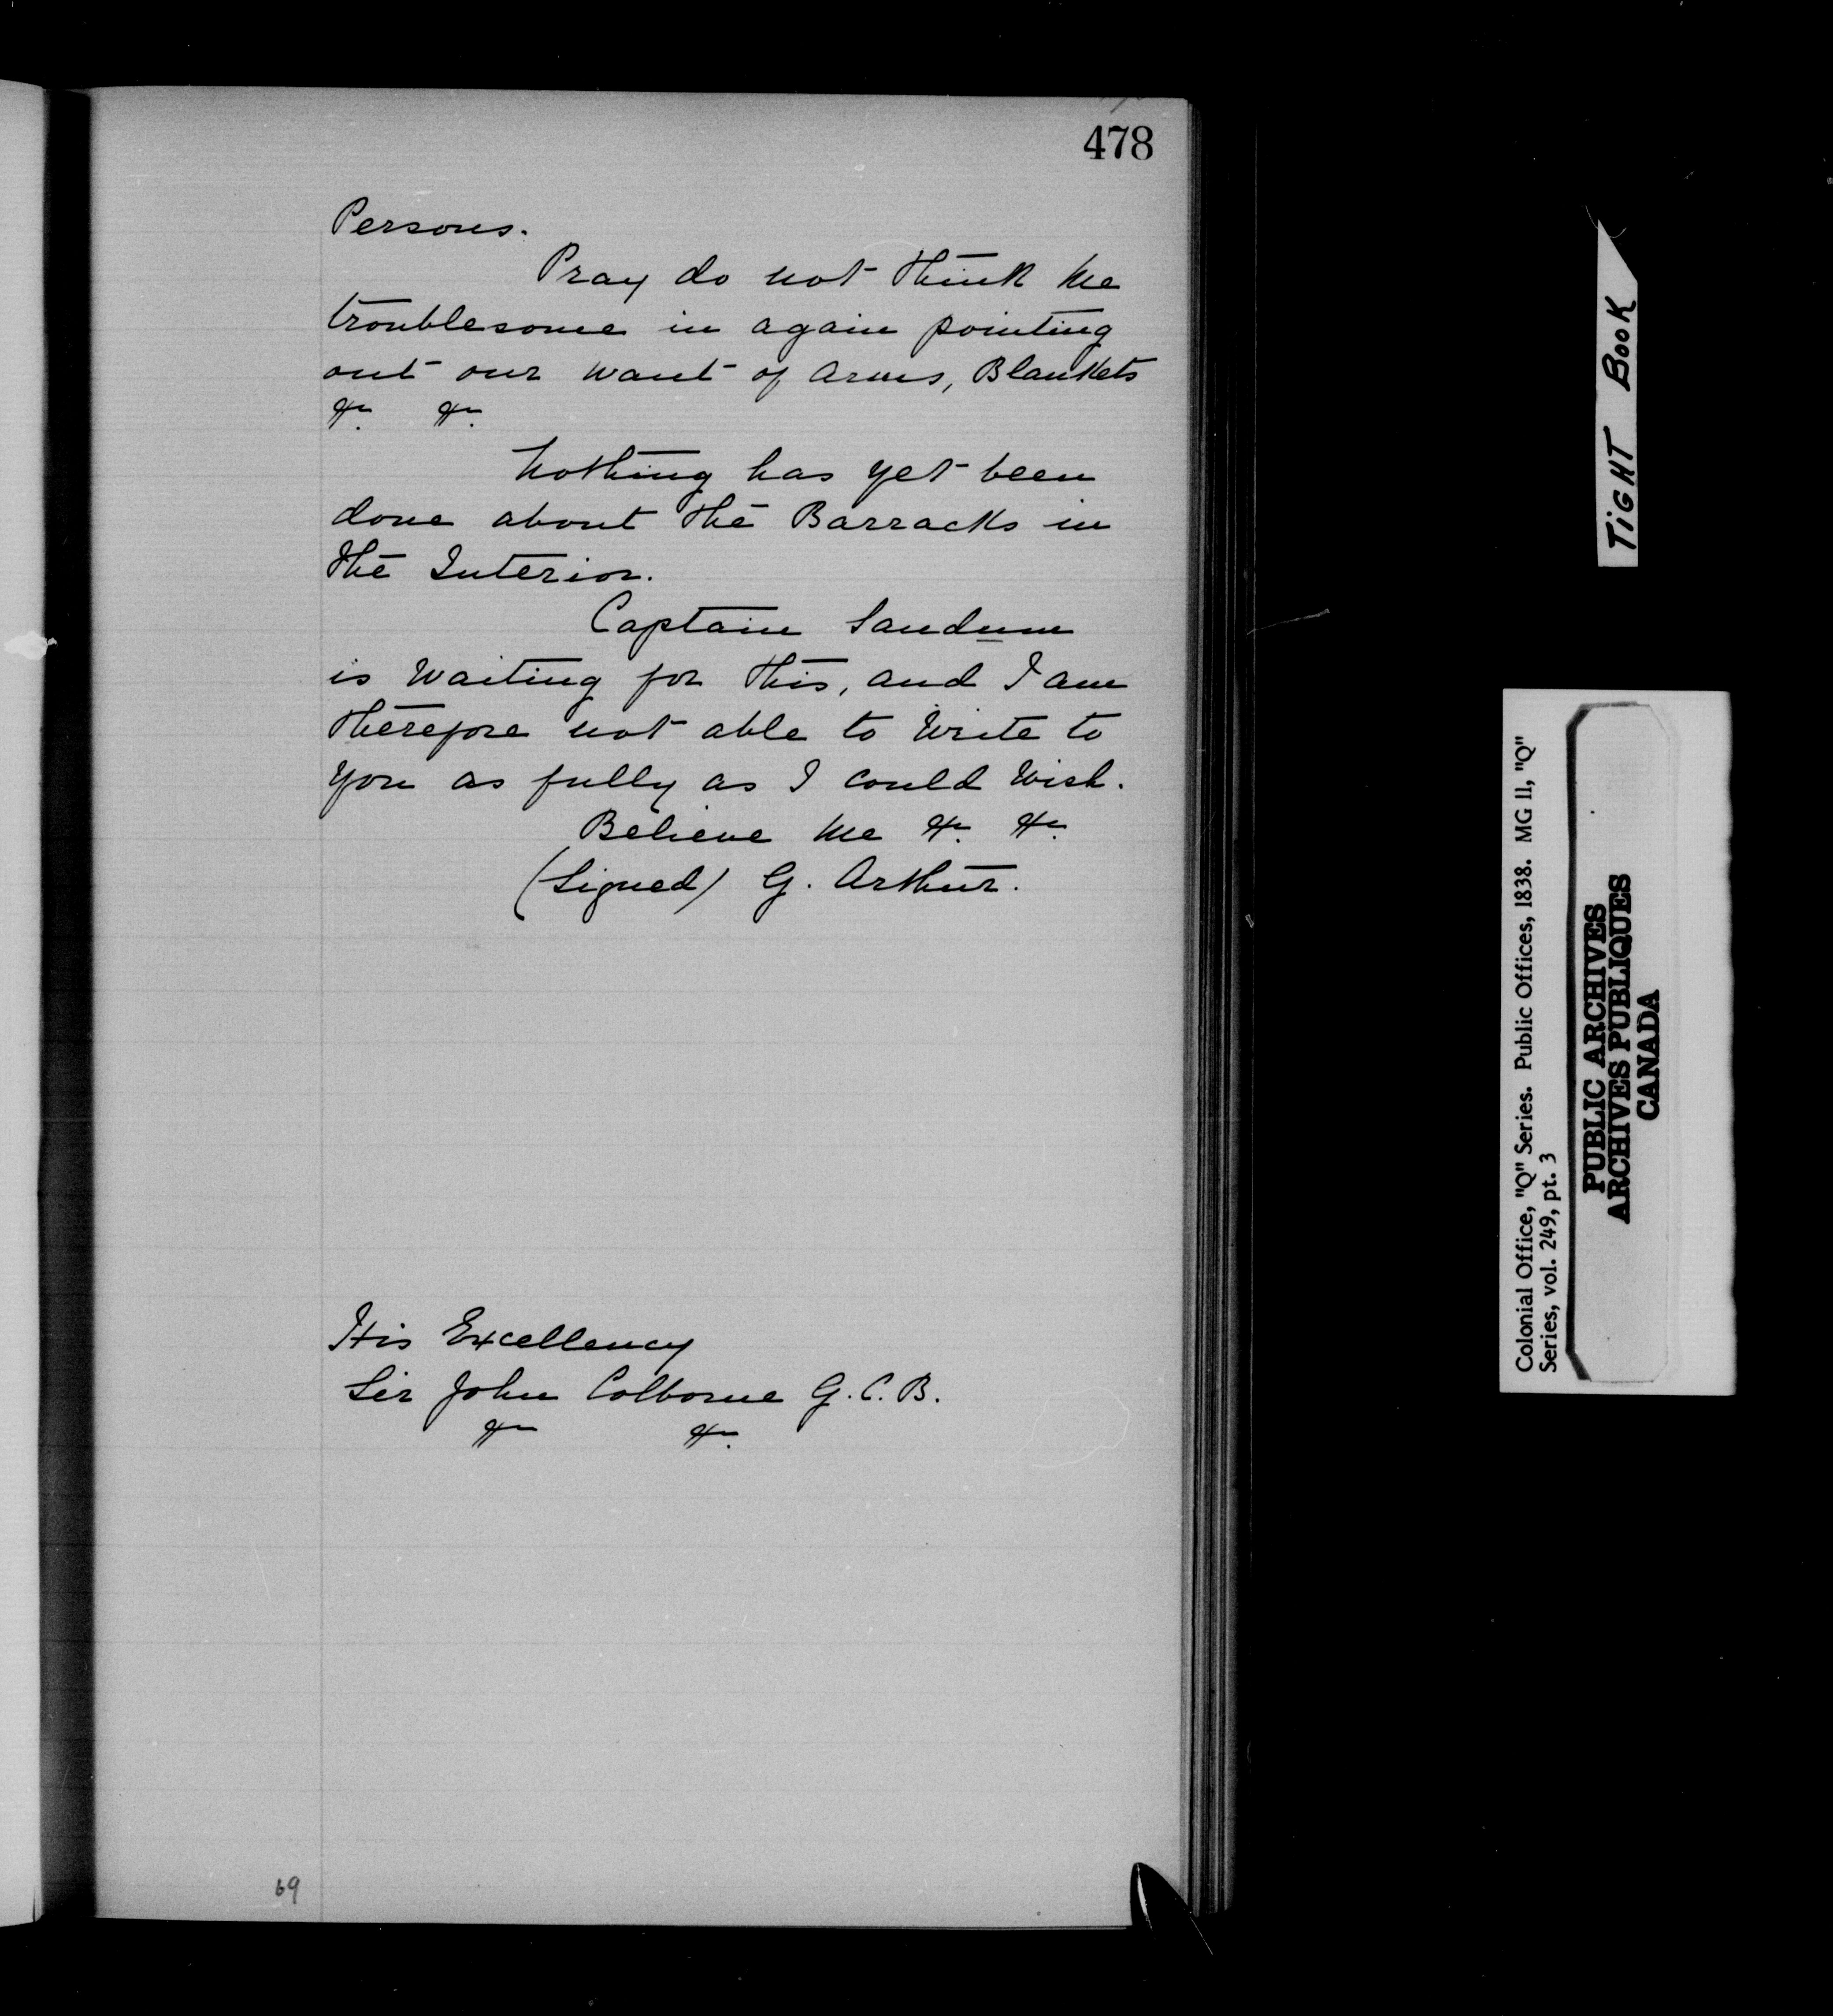 478
Persons.
Pray do not think me
troublesome in again pointing
out our want of Arms, Blankets
&c. &c.
Nothing has yet been
done about the Barracks in
the Interior.
Captain
is waiting for this, and I am
therefore not able to write to
you as fully as I could wish.
Believe me &c. &c.
(Signed) G. Arthur.
His Excellency
Sir John Colborne G.C.B.
&c &c.
69
TIGHT BOOK
Colonial Office, "Q" Series. Public Offices, 1838. MG 11, "Q"
Series, vol. 249, pt. 3
PUBLIC ARCHIVES
ARCHIVES PUBLIQUES
CANADA